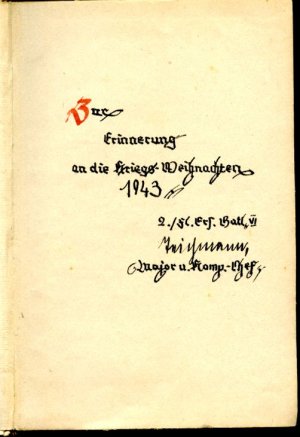 Zur
Erinnerung
an die Kriegs-Weihnachten
1943
2./Fl. Ers. Batl. VI
Teichmann,
Major u. Komp.-Chef.